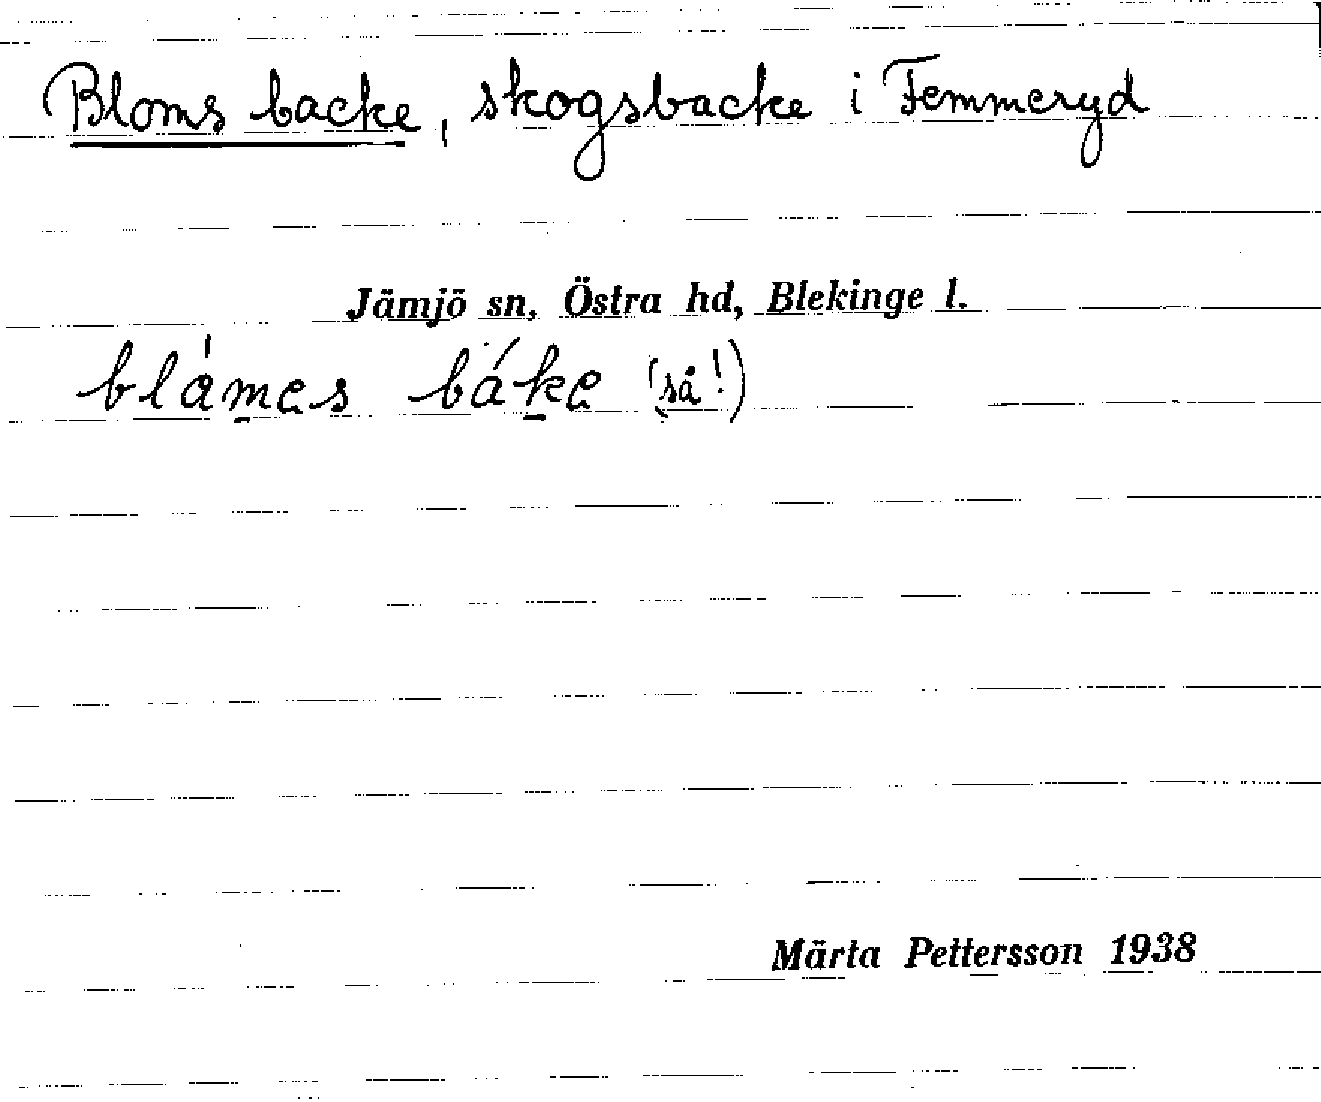 Bloms backe, skogsbacke i Femmeryd
Jämjö sn, Östra hd, Blekinge l.
blámes báke (så!)
Märta Pettersson 1938